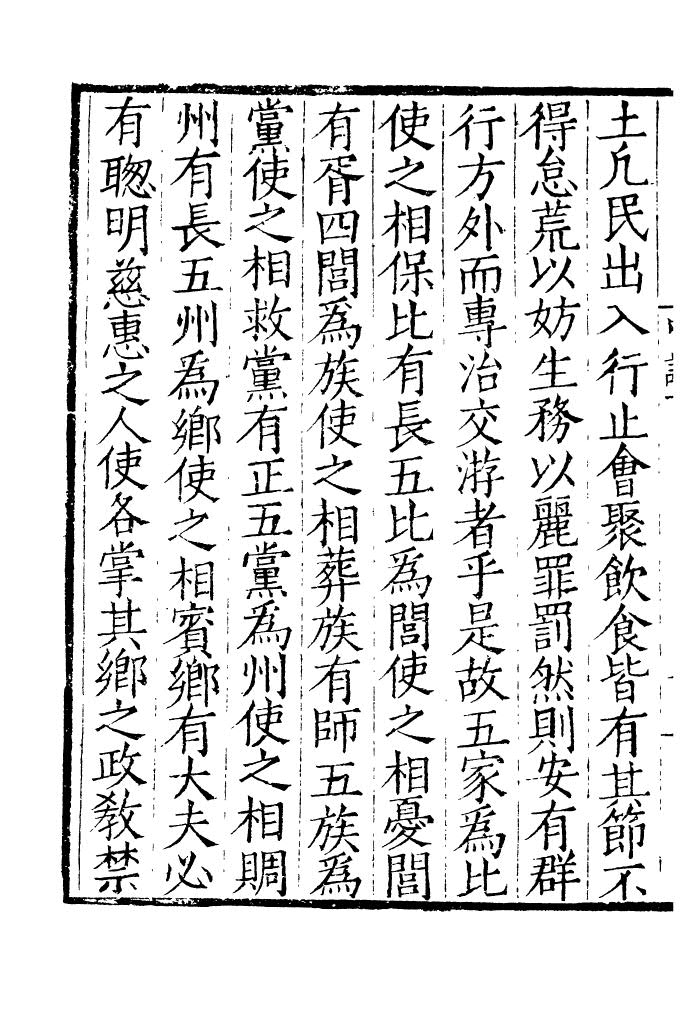 土凡民出入行止會聚飲食皆有其節不
得怠荒以妨生務以麗罪罰然則安有群
行方外而專治交游者乎是故五家爲比
使之相保比有長五比爲閭使之相憂閭
有胥四閭爲族使之相葬族有師五族爲
黨使之相救黨有正五黨爲州使之相賙
州有長五州爲鄉使之相賓鄉有大夫必
有聦明慈惠之人使各掌其鄉之政教禁